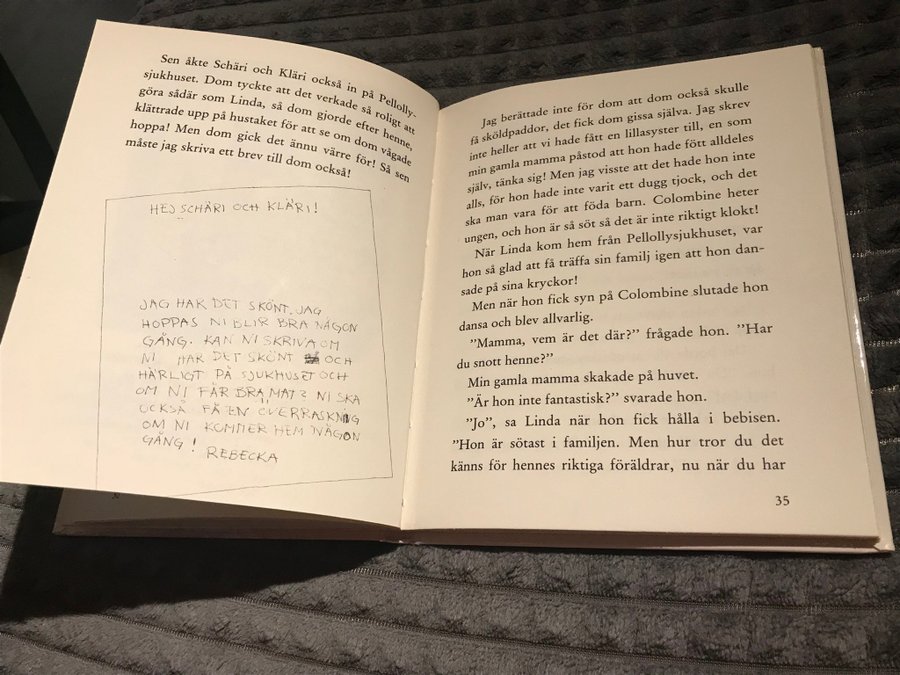 Sen åkte Schäri och Kläri också in på Pellolly-
sjukhuset. Dom tyckte att det verkade så roligt att
göra sådär som Linda, så dom gjorde efter henne,
klättrade upp på hustaket för att se om dom vågade
hoppa! Men dom gick det ännu värre för! Så sen
måste jag skriva ett brev till dom också!
HEJ SCHÄRI OCH KLÄRI!
JAG HAR DET SKÖNT. JAG
HOPPAS NI BLIR BRA NÅGON
GÅNG. KAN NI SKRIVA OM
NI HAR DET SKÖNT OCH
HÄRLIGT PÅ SJUKHUSET OCH
OM NI FÅR BRA MAT? NI SKA
OCKSÅ FÅ EN ÖVERRASKNING
OM NI KOMMER HEM NÅGON
GÅNG!
REBECKA
Jag berättade inte för dom att dom också skulle
få sköldpaddor, det fick dom gissa själva. Jag skrev
inte heller att vi hade fått en lillasyster till, en som
min gamla mamma påstod att hon hade fött alldeles
själv, tänka sig! Men jag visste att det hade hon inte
alls, för hon hade inte varit ett dugg tjock, och det
ska man vara för att föda barn. Colombine heter
ungen, och hon är så söt så det är inte riktigt klokt!
När Linda kom hem från Pellollysjukhuset, var
hon så glad att få träffa sin familj igen att hon dan-
sade på sina kryckor!
Men när hon fick syn på Colombine slutade hon
dansa och blev allvarlig.
”Mamma, vem är det där?” frågade hon. ”Har
du snott henne?”
Min gamla mamma skakade på huvet.
”Är hon inte fantastisk?” svarade hon.
”Jo”, sa Linda när hon fick hålla i bebisen.
”Hon är sötast i familjen. Men hur tror du det
känns för hennes riktiga föräldrar, nu när du har
35